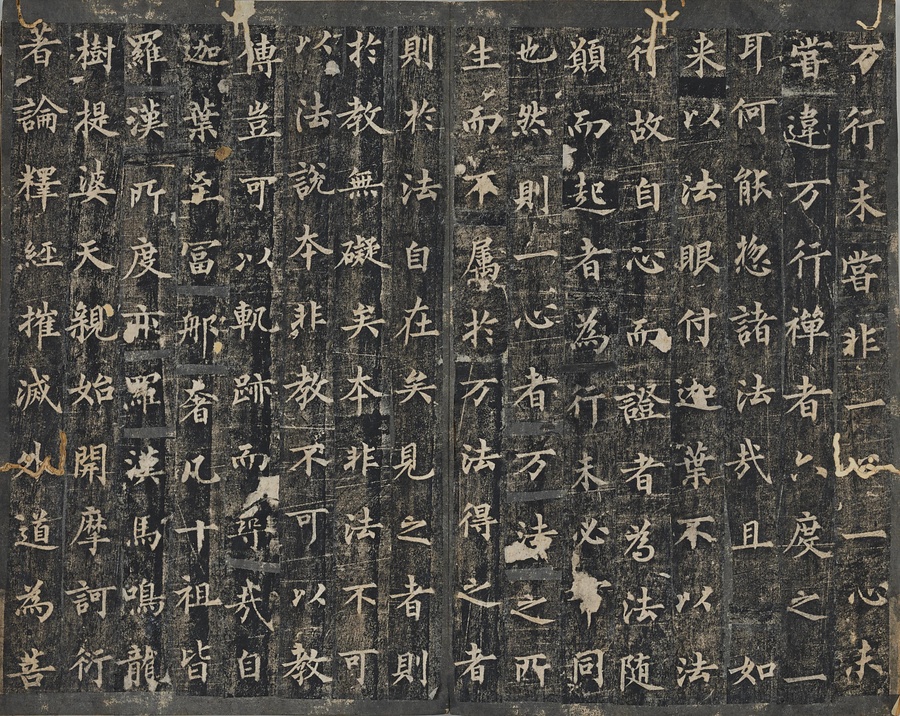 万行未嘗非一心一心未
嘗違万行禪者六度之一
耳何能惣諸法哉且如
来以法眼付迦葉不以法
行故自心而證者為法随
願而起者為行未必同
也然則一心者万法之所
生而不属於万法得之者
則於法自在矣見之者則
於教無礙矣本非法不可
以法說本非教不可以教
傳豈可以軌跡而尋哉自
迦葉至冨那奢凡十祖皆
羅漢所度亦羅漢馬鳴龍
樹提婆天親始開摩訶衍
著論釋經摧滅外道為菩